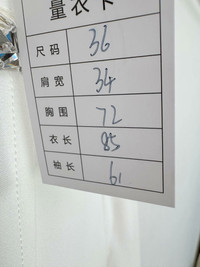 量衣卡
尺码 36
肩宽 34
胸围 72
衣长 85
袖长 61